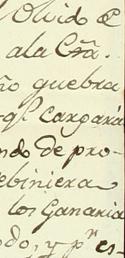 olvido &
a la Cñã.
ño quebra
rql cargaria
ndo de pro-
ebiniera
los Ganaria
odo, y pr es-